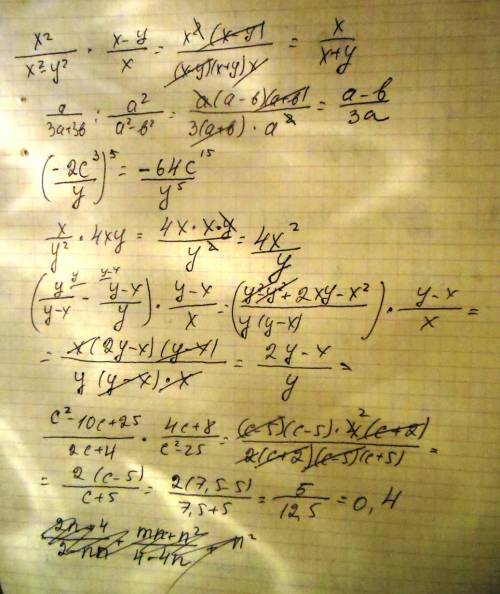 x²/(x²-y²) · (x-y)/x = x²(x-y)/((x-y)(x+y)x) = x/(x+y)
a/(3a+3b) : a²/(a²-b²) = a(a-b)(a+b)/(3(a+b)·a²) = (a-b)/(3a)
(-2c³/y)⁵ = -64c¹⁵/y⁵
x/y² · 4xy = 4x·x·y/y² = 4x²/y
(y/(y-x) - (y-x)/y) · (y-x)/x = ((y²-y²+2xy-x²)/(y(y-x))) · (y-x)/x =
= x(2y-x)(y-x)/(y(y-x)·x) = (2y-x)/y =
(c²-10c+25)/(2c+4) · (4c+8)/(c²-25) = (c-5)(c-5)·4(c+2)/(2(c+2)(c-5)(c+5)) =
= 2(c-5)/(c+5) = 2(7,5-5)/(7,5+5) = 5/12,5 = 0,4